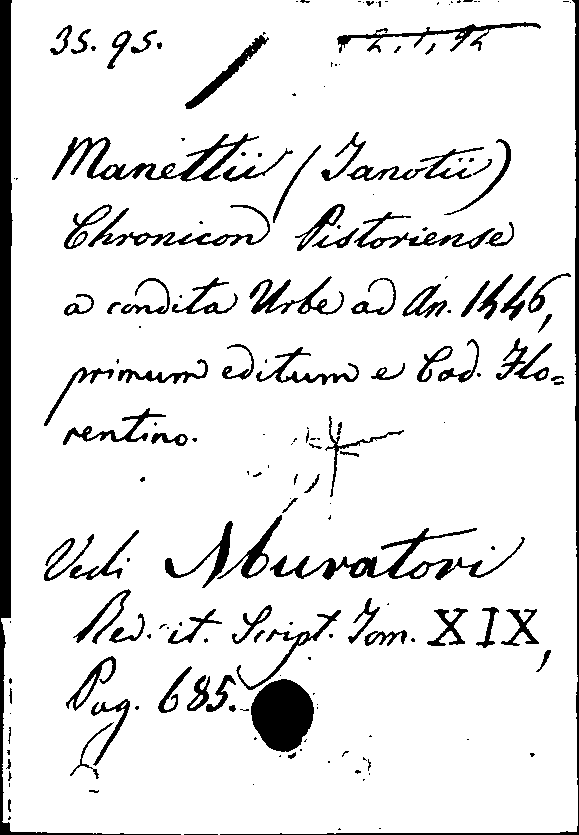 35. 95.
2, 1, 92
Manettii (Janotii)
Chronicon Pistoriense
a condita Urbe ad An. 1446,
primum editum e Cod. Flo=
rentino.
Vedi Muratori
Rer. it. Script. Tom. XIX,
Pag. 685.